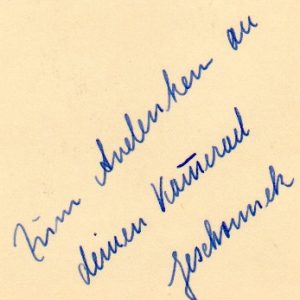 Zum Andenken an
deinen Kamerad
Geschonnek